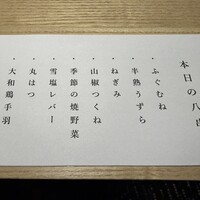 本日の八
・ふぐむね
・半熟うずら
・ねぎみ
・山椒つくね
・季節の焼野菜
・雪塩レバー
・丸はつ
・大和鶏手羽